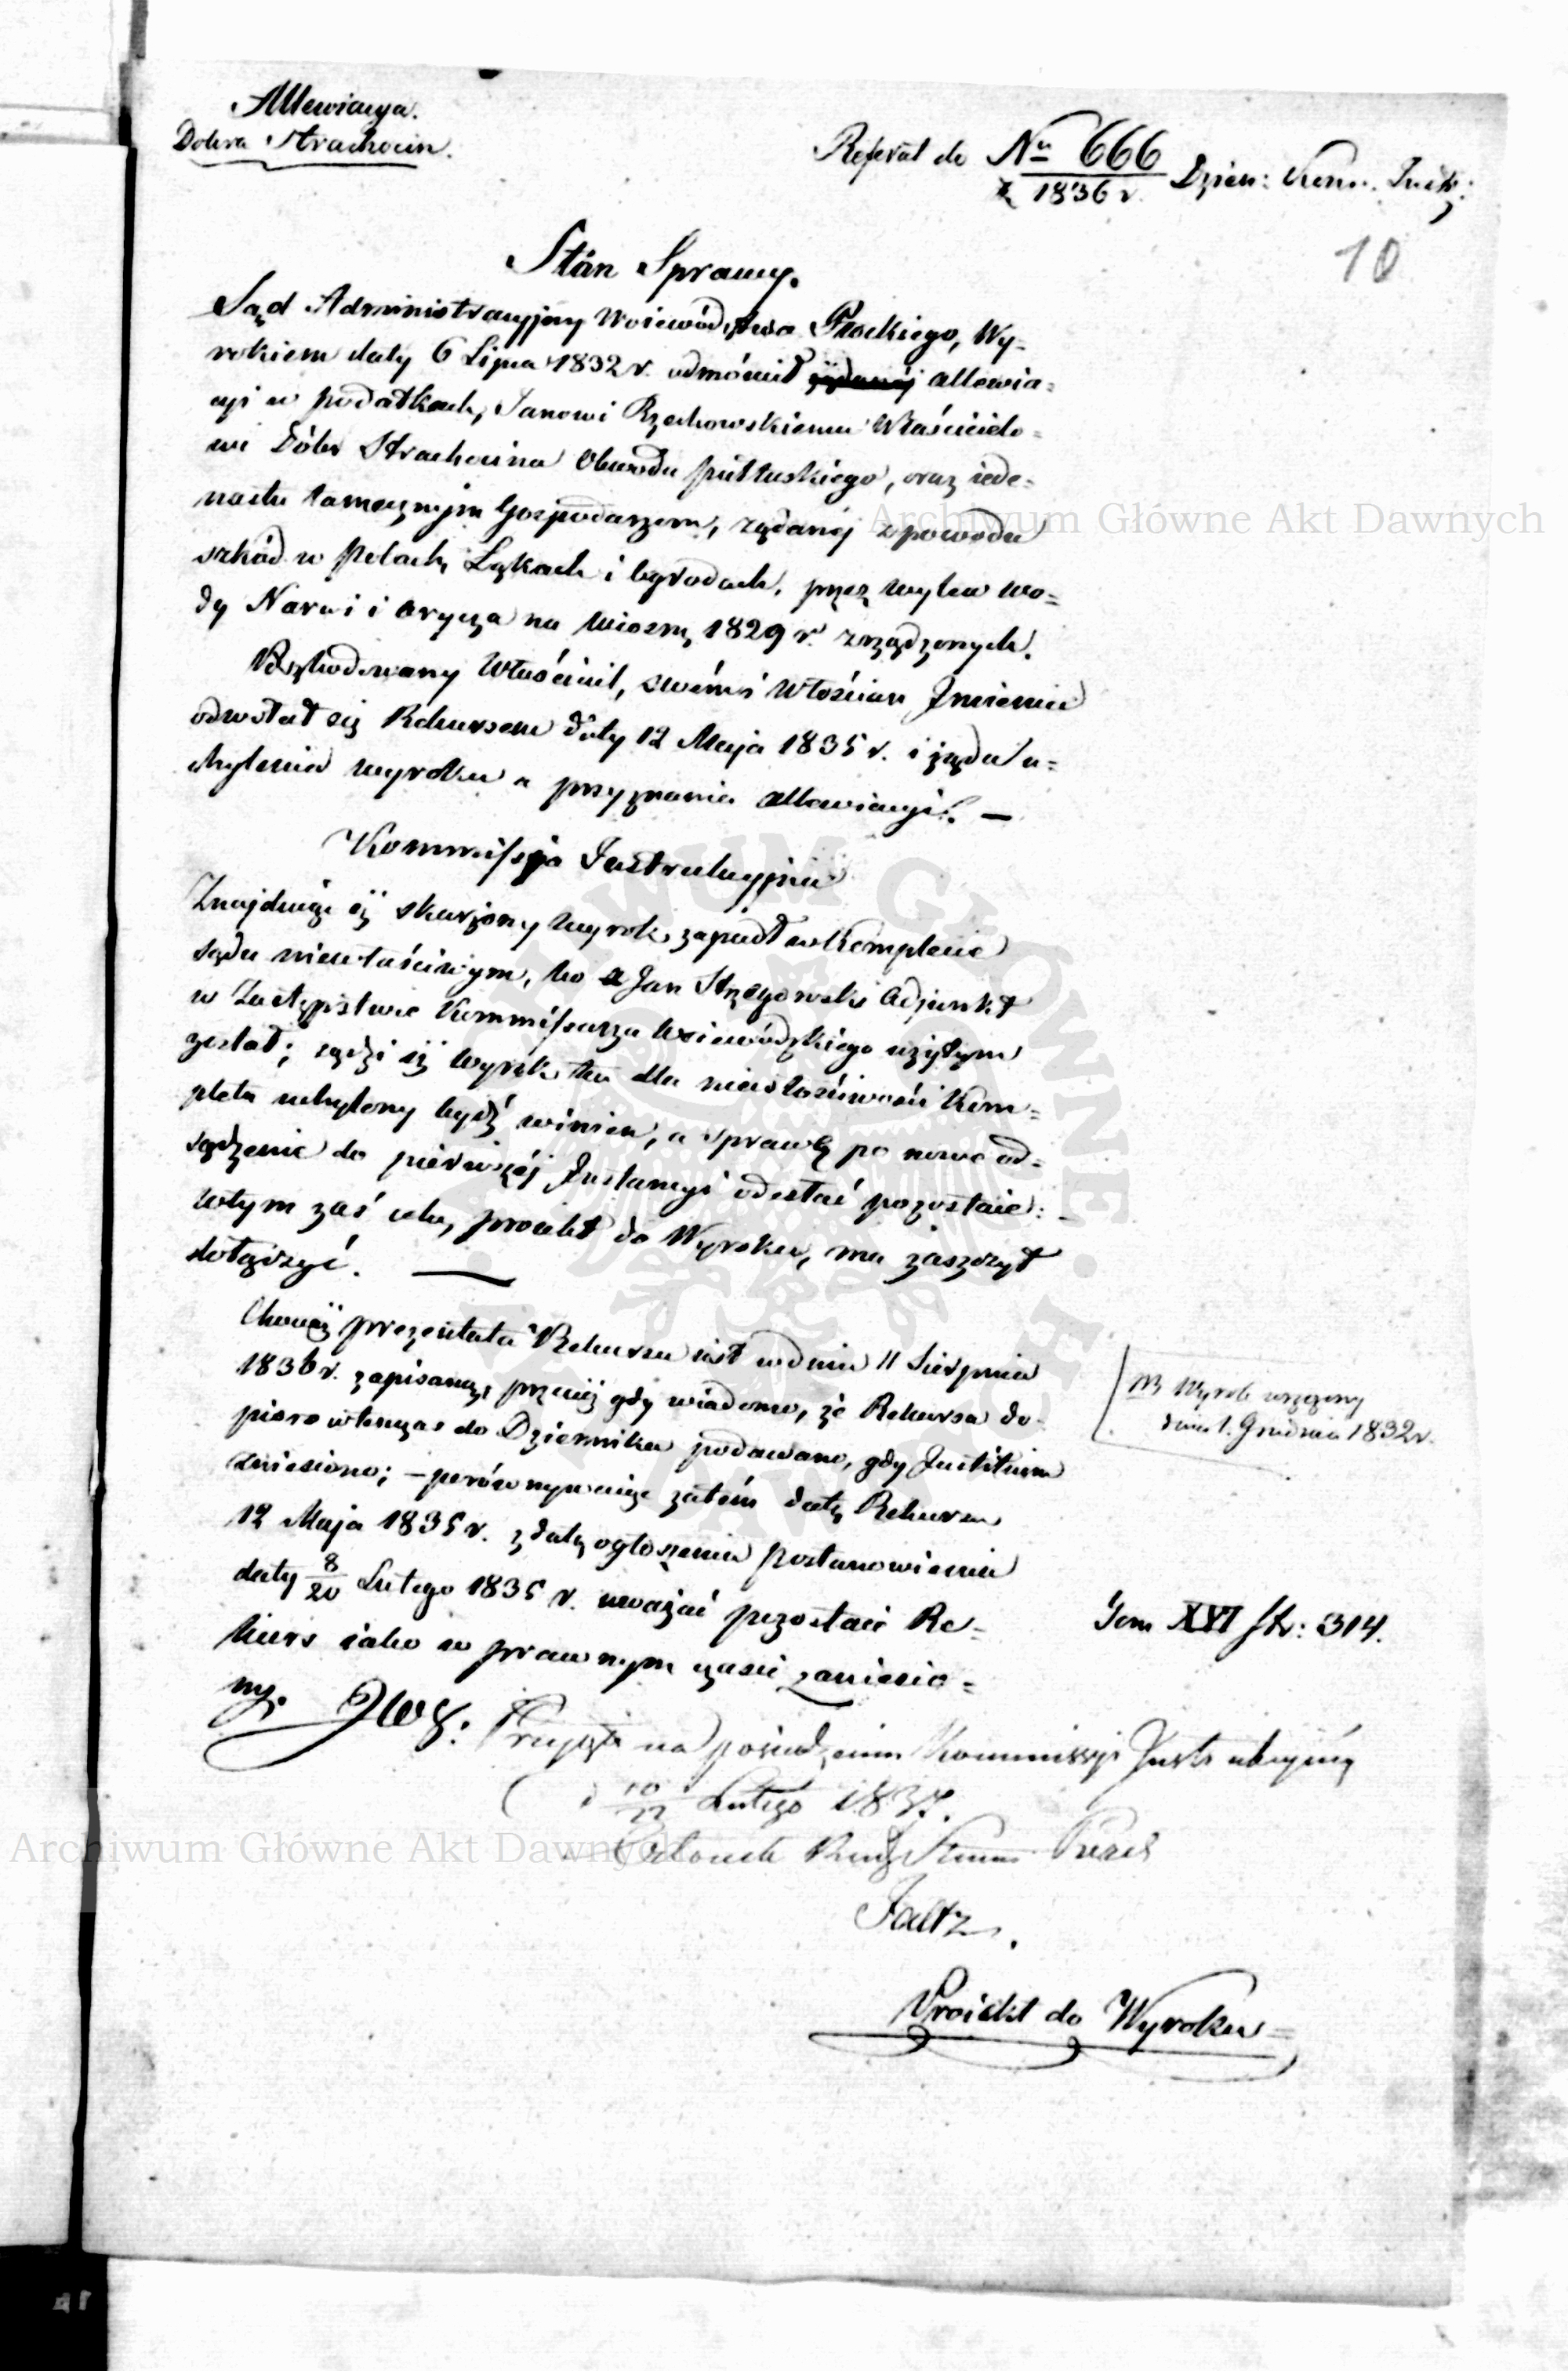 Allewiacya.
Dobra Strachocin.
Referat do Nu 666 Dzien: Kom. Instr:
z 1836 r.
10
Stán Sprawy.
Sąd Administracyjny Woiewództwa Płockiego, Wy=
rokiem daty 6 Lipca 1832 r. odmówił żądanéj allewia=
cyi w podatkach, Janowi Rzechowskiemu Właścicielo=
wi Dóbr Strachocina Obwodu pułtuskiego, oraz iede=
nastu tamecznym Gospodarzom, żądanéj z powodu
szkód w polach, Łąkach i Ogrodach, przez wylew wo=
dy Narwi i Orzyca na wiosnę 1829 r. zrządzonych.
Poszkodowany Właściciel, swém i Włościan Jmieniem
odwołał się Rekursem daty 12 Maja 1835 r. i żąda u=
chylenia wyroku a przyznania allewiacyi. —
Kommissya Instrukcyjna
Znajduiąc iż skarżony wyrok zapadł w Komplecie
sądu niewłaściwym, bo Jan Strzegowski Adjunkt
w Zastępstwie Kommissarza Woiewódzkiego użytym
został; sądzi iż wyrok ten dla niewłaściwości Kom=
pletu uchylony bydź winien, a sprawę po nowe od=
sądzenie do pierwszéj Instancyi odesłać pozostaie:
w tym zaś celu, proiekt do Wyroku, ma zaszczyt
dołączyć. —
Chociaż prezentata Rekursu iest w dniu 11 Sierpnia
1836 r. zapisaną, przecięż gdy wiadomo, że Rekursa do-
pioro wtenczas do Dziennika podawano, gdy Justitium
zniesiono; – porównywaiąc zatém datę Rekursu
12 Maja 1835 r. z datą ogłoszenia postanowienia
daty 8/20 Lutego 1835 r. uważać pozostaie Re=
kurs iako w prawnym czasie zaniesio=
ny.
NB Wyrok wręczony
dnia 1. Grudnia 1832 r.
Tom XVI str: 314.
Przyięto na posiedzeniu Kommissyi Instrukcyjnéj
d 10/22 Lutego 1837.
Członek Rady Stanu Prezes
Faltz.
Proiekt do Wyroku=
Archiwum Główne Akt Dawnych
Archiwum Główne Akt Dawnych